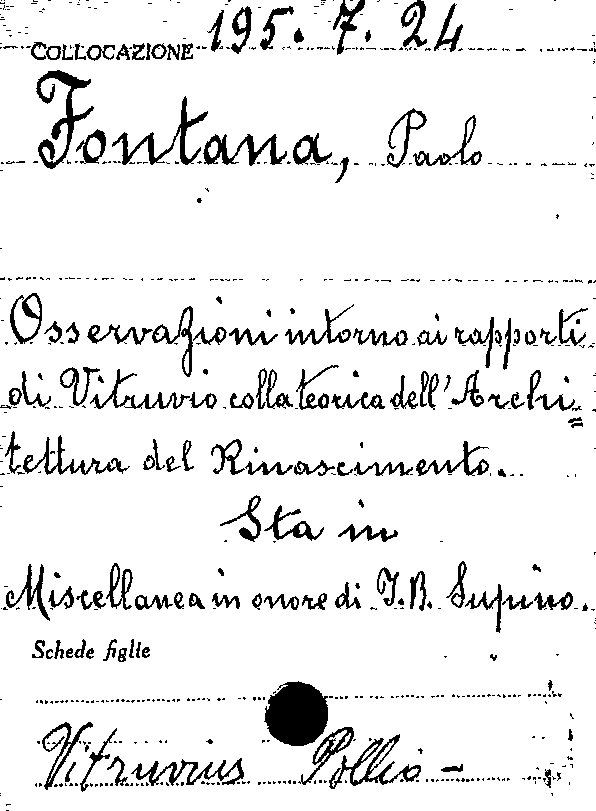 COLLOCAZIONE 195. 7. 24
Fontana, Paolo
Osservazioni intorno ai rapporti
di Vitruvio colla teorica dell'Archi=
tettura del Rinascimento.
Sta in
Miscellanea in onore di I. B. Supino.
Schede figlie
Vitruvius Pollio -